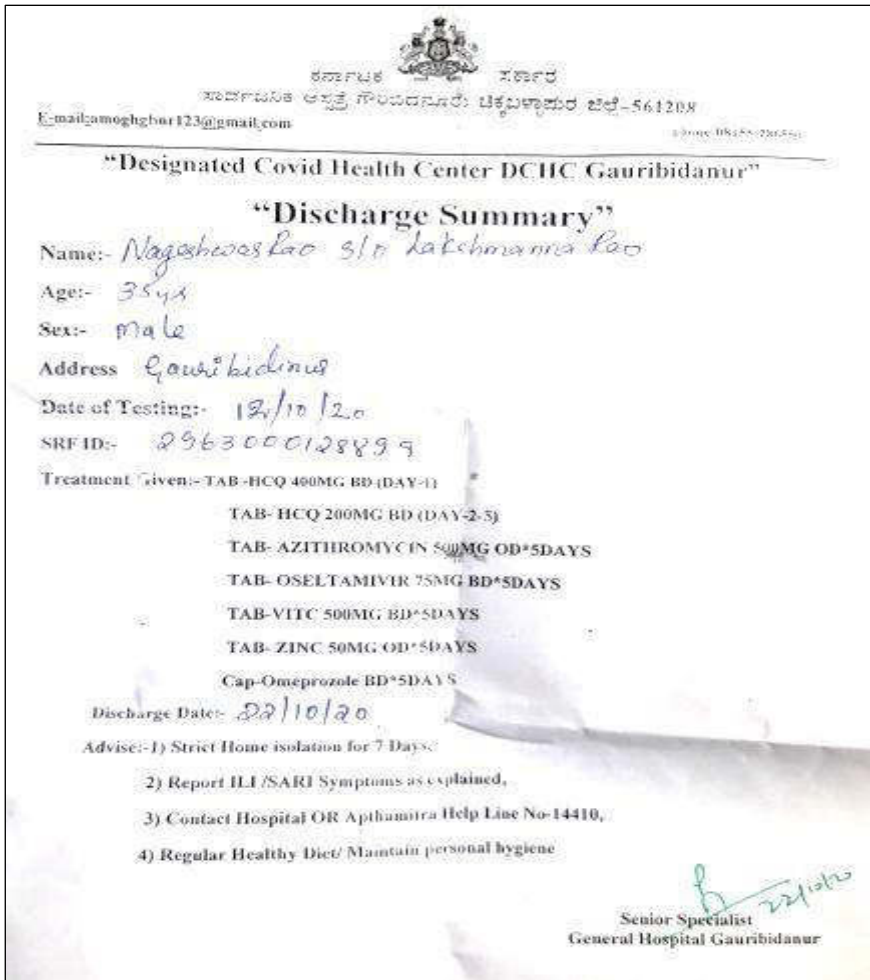 ಕರ್ನಾಟಕ ಸರ್ಕಾರ
ಸಾರ್ವಜನಿಕ ಆಸ್ಪತ್ರೆ ಗೌರಿಬಿದನೂರು ಚಿಕ್ಕಬಳ್ಳಾಪುರ ಜಿಲ್ಲೆ-561208
E-mail:amoghgbnr123@gmail.com
"Designated Covid Health Center DCHC Gauribidanur"
"Discharge Summary"
Name:- Nageshwar Rao S/o Lakshmanna Rao
Age:- 35yrs
Sex:- male
Address Gauribidinur
Date of Testing:- 12/10/20
SRF ID:- 2963000128899
Treatment Given:- TAB -HCQ 400MG BD (DAY-1)
TAB- HCQ 200MG BD (DAY-2-5)
TAB- AZITHROMYCIN 500MG OD*5DAYS
TAB- OSELTAMIVIR 75MG BD*5DAYS
TAB-VITC 500MG BD*5DAYS
TAB- ZINC 50MG OD*5DAYS
Cap-Omeprozole BD*5DAYS
Discharge Date:- 22/10/20
Advise:-1) Strict Home isolation for 7 Days.
2) Report ILI /SARI Symptoms as explained,
3) Contact Hospital OR Apthamitra Help Line No-14410,
4) Regular Healthy Diet/ Maintain personal hygiene
22/10/20
Senior Specialist
General Hospital Gauribidanur